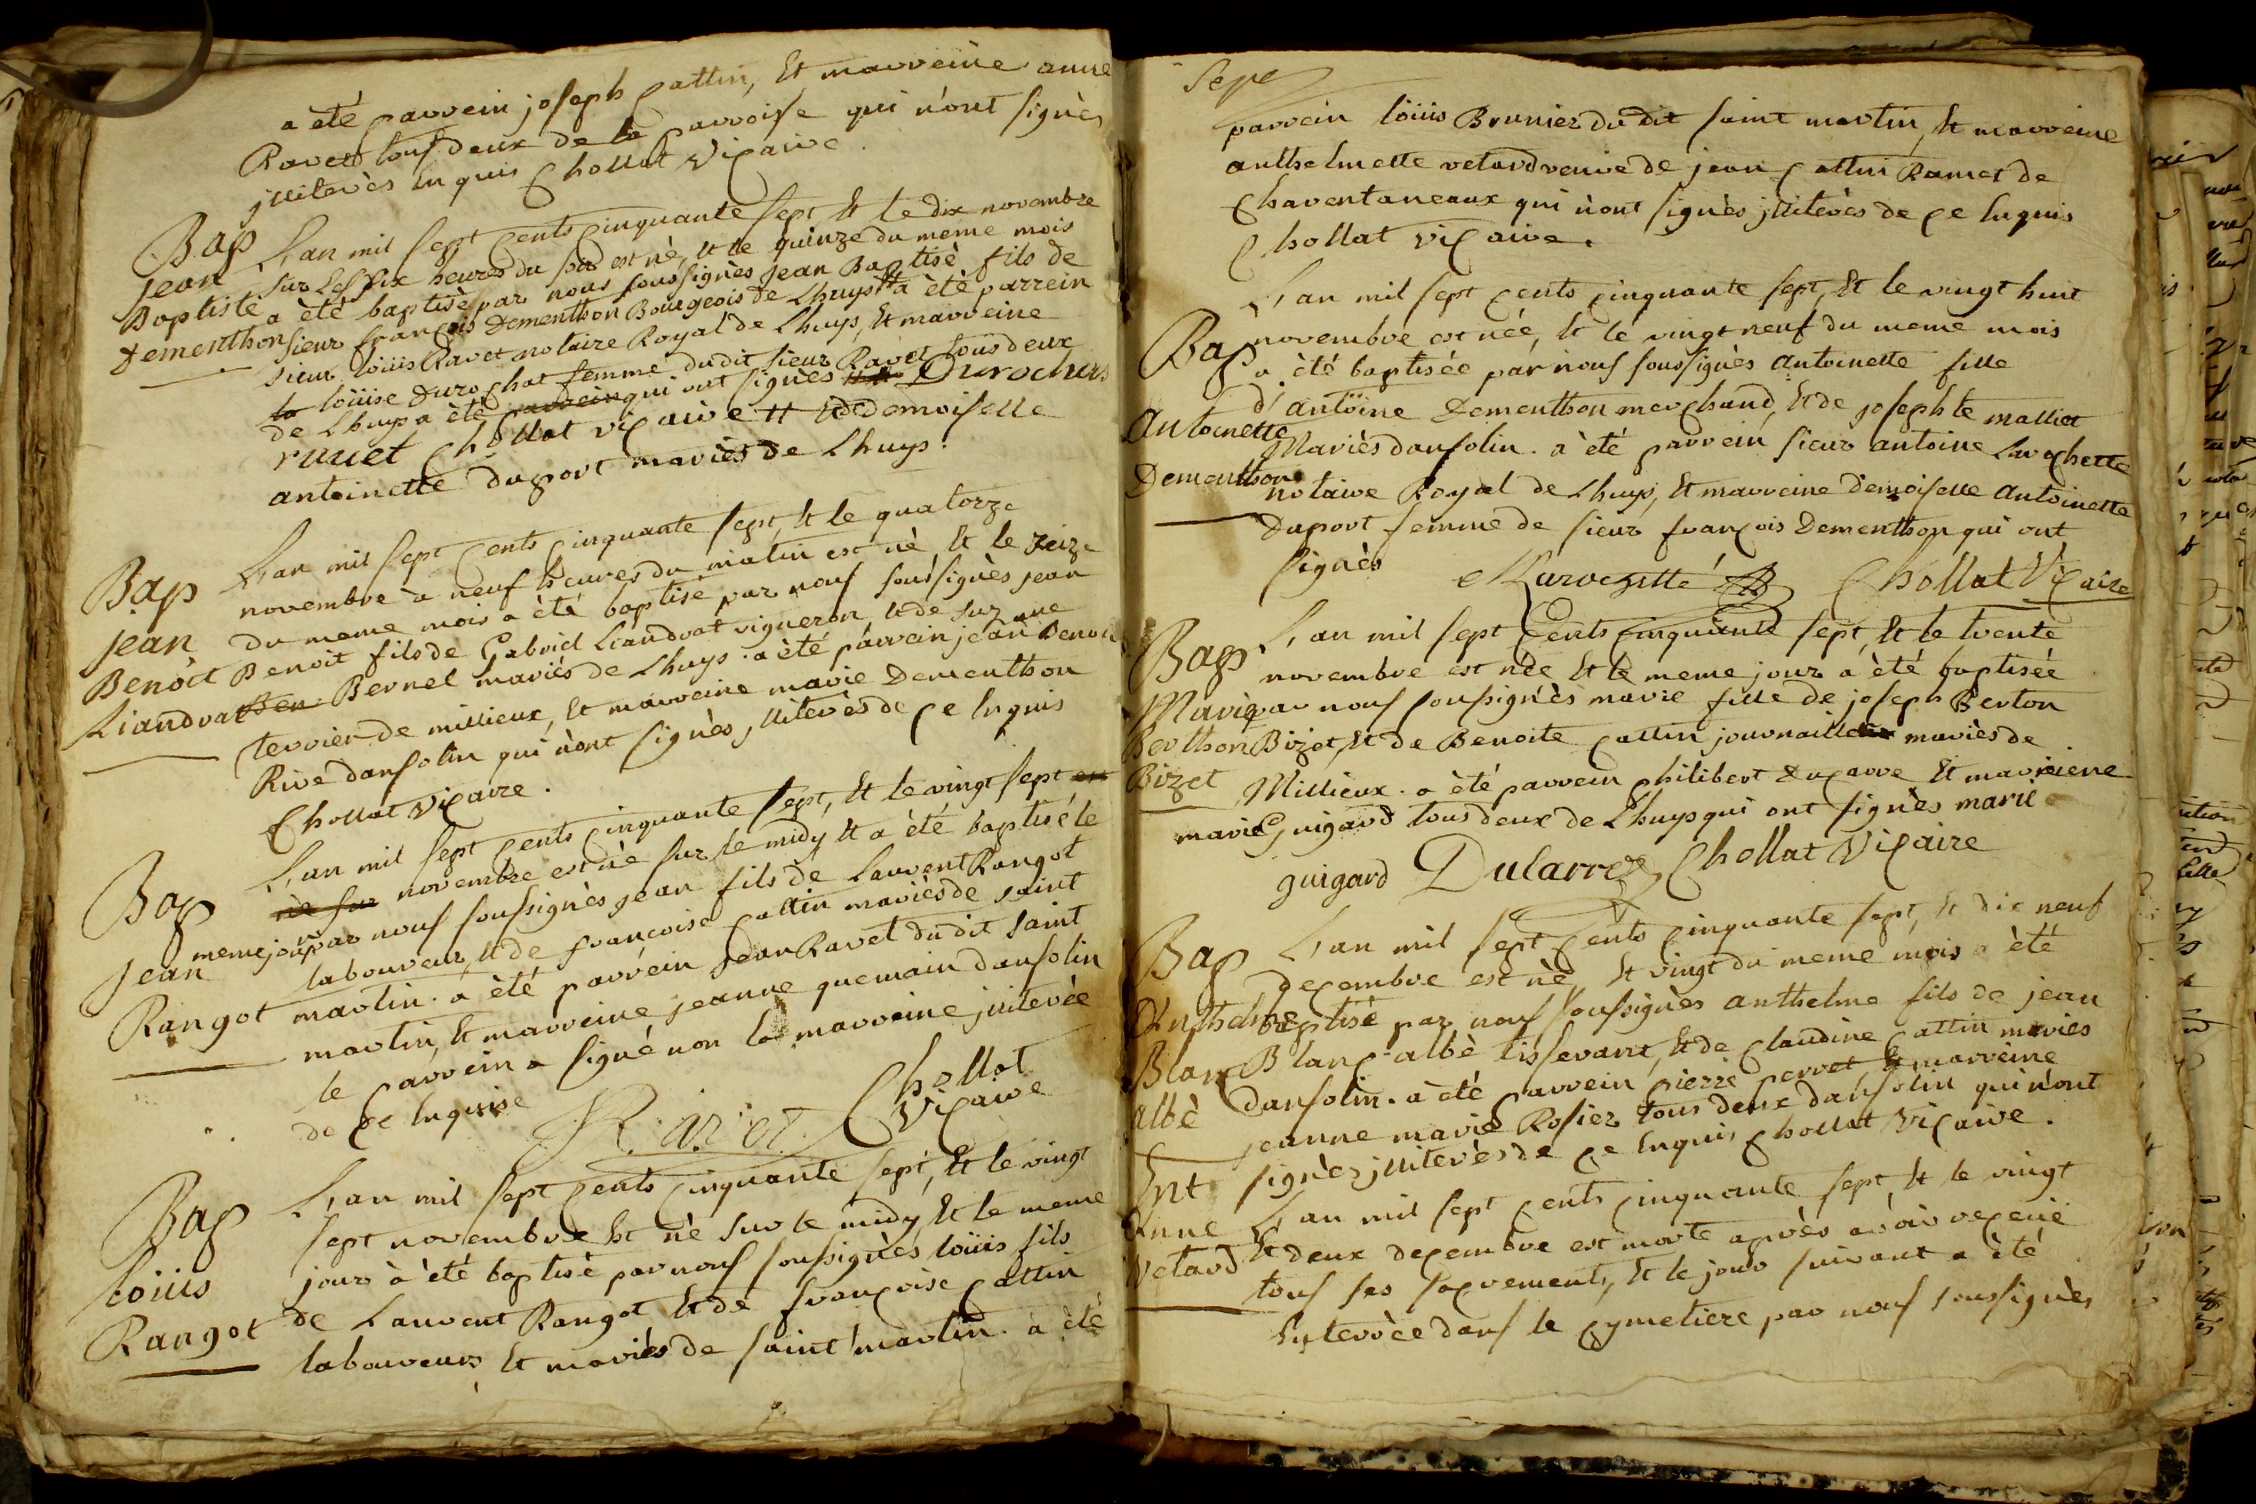 a èté parrein joseph Cattin, Et marreine anne
Ravet tous deux de la parroise qui n'ont signès
jlliterès Enquis Chollat Vicaire.
Bap
Jean
Baptiste
Dementhon
L'an mil sept Cents Cinquante sept Et le dix novembre
sur les six heures du soir est nè, Et le quinze du meme mois
a èté baptisè par nous soussignès Jean Baptisè fils de
sieur françois Dementhon Bourgeois de Lhuys tt a èté parrein
sieur loüis Ravet notaire Royal de Lhuys, Et marreine
la loüise Durochat femme dudit sieur Ravet tous deux
de Lhuys a èté parrein qui ont signès Durochat
ravet Chollat vicaire tt Et de demoiselle
antoinette duport mariès de Lhuys.
Bap
Jean
Benoit
Liandrat
L'an mil sept Cents Cinquante sept, Et le quatorze
novembre à neuf heures du matin est nè, Et le seize
du meme mois a èté baptisé par nous soussignès jean
Benoit fils de Gabriel Liandrat vigneron, Et de suzanne
Ben Bernel mariés de Lhuys. a èté parrein jean Benoit
terrier de millieux, Et marreine marie Dementhon
Rive dansolin qui n'ont signès jlliterès de Ce Enquis
Chollat Vicaire.
Bap
Jean
Rangot
L'an mil sept Cents Cinquante sept, Et le vingt sept est
nè sur novembre est né sur le midy Et a èté baptisé le
meme jour par nous soussignès jean fils de Laurent Rangot
laboureur, Et de françoise Cattin mariès de saint
martin. a èté parrein Jean Ravet du dit saint
martin, Et marreine jeanne quemain dansolin
le parrein a signé non la marreine jlliterèe
de Ce Enquise
Ravet Chollat
Vicaire
Bap
loüis
Rangot
L'an mil sept Cents Cinquante sept, Et le vingt
sept novembre Est né sur le midy Et le meme
jour à èté baptisè par nous soussignès loüis fils
de Laurent Rangot Et de françoise Cattin
laboureurs Et mariés de saint martin. a èté
Sept
parrein loüis Brunier du dit saint martin, Et marreine
anthelmette retard veuve de jean Cattin Ramet de
Charentaneaux qui n'ont signès jlliterès de Ce Enquis
Chollat vicaire.
Bap
Antoinette
Dementhon
L'an mil sept Cents Cinquante sept, Et le vingt huit
novembre est née, Et le vingt neuf du meme mois
a èté baptisée par nous soussignès Antoinette fille
d'antoine Dementhon marchand, Et de josephte malliet
Mariès dansolin. a èté parrein sieur antoine Larochette
notaire Royal de Lhuys, Et marreine demoiselle Antoinette
Duport femme de sieur françois Dementhon qui ont
signès Larochette Chollat Vicaire
Bap
Marie
Berthon
Bizet
L'an mil sept Cents Cinquante sept, Et le trente
novembre est nèe Et le meme jour a èté baptisée
par nous soussignès marie fille de joseph Berton
Bizet, Et de Benoite Cattin journailliers mariès de
Millieux. a èté parrein philibert ducarre Et marreiene
marie Guigard tous deux de Lhuys qui ont signès marie
guigard Ducarre Chollat Vicaire
Bap
Anthelme
Blanc
albè
L'an mil sept Cents Cinquante sept, Et dix neuf
decembre est nè, Et vingt du meme mois a èté
baptisé par nous soussignès anthelme fils de jean
Blanc-albè tisserant, Et de Claudine Cattin mariés
dansolin. a èté parrein pierre perret, Et marreine
jeanne marie Rosier tous deux dansolin qui n'ont
signès jlliterès de Ce Enquis Chollat Vicaire.
Ent
Anne
Retard
L'an mil sept Cents Cinquante sept, Et le vingt
Et deux decembre est morte après avoir receüe
tous ses sacrements, Et le jour suivant a èté
Enterrèe dans le Cymetiere par nous soussignès